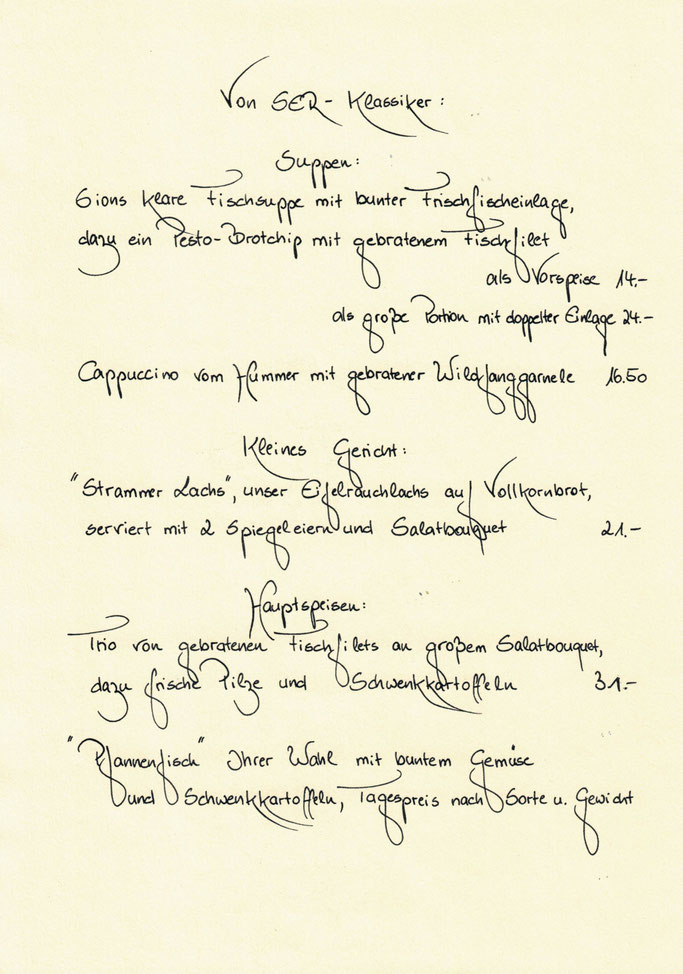 Von SER-Klassiker:
Suppen:
Gions klare Fischsuppe mit bunter Frischfischeinlage,
dazu ein Pesto-Brotchip mit gebratenem Fischfilet
als Vorspeise 14.-
als große Portion mit doppelter Einlage 24.-
Cappuccino vom Hummer mit gebratener Wildfanggarnele 16.50
Kleines Gericht:
"Strammer Lachs", unser Eifelrauchlachs auf Vollkornbrot,
serviert mit 2 Spiegeleiern und Salatbouquet 21.-
Hauptspeisen:
Trio von gebratenen Fischfilets an großem Salatbouquet,
dazu frische Pilze und Schwenkkartoffeln 31.-
"Pfannenfisch" Ihrer Wahl mit buntem Gemüse
und Schwenkkartoffeln, Tagespreis nach Sorte u. Gewicht